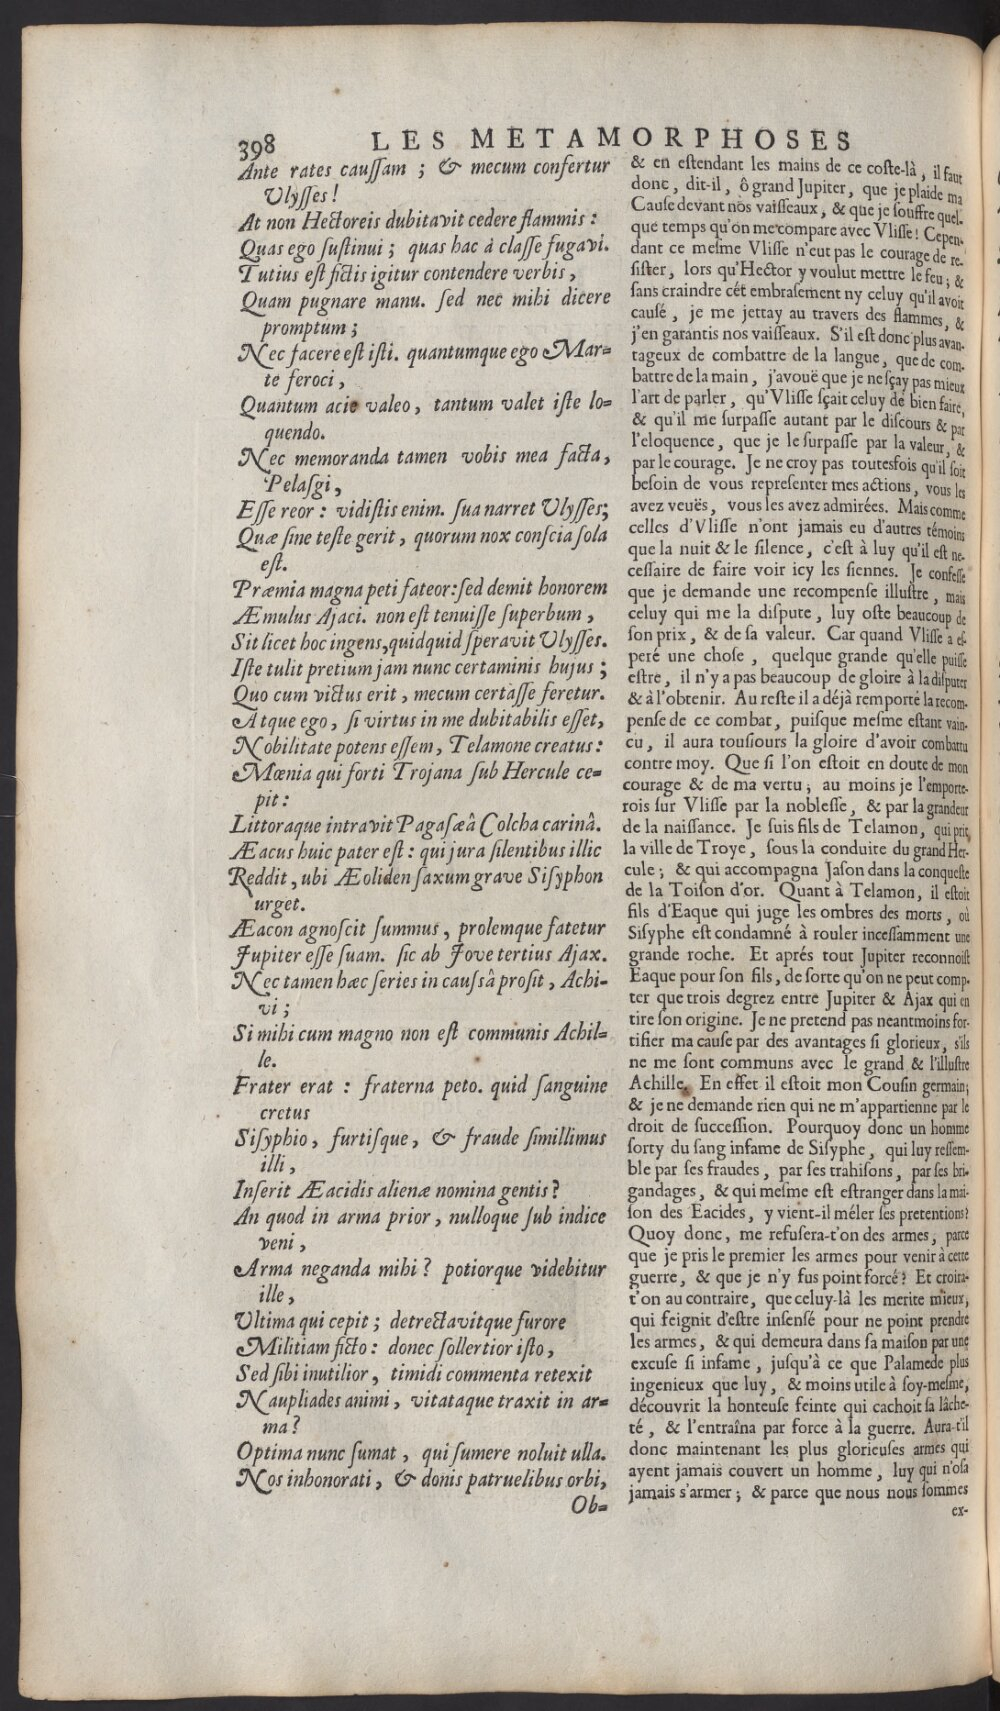 398 LES METAMORPHOSES
Ante rates caussam ; & mecum confertur
Ulysses !
At non Hectoreis dubitavit cedere flammis :
Quas ego sustinui ; quas hac à classe fugavi.
Tutius est fictis igitur contendere verbis ,
Quam pugnare manu. sed nec mihi dicere
promptum ;
Nec facere est isti. quantumque ego Mar=
te feroci ,
Quantum acie valeo , tantum valet iste lo=
quendo.
Nec memoranda tamen vobis mea facta ,
Pelasgi ,
Esse reor : vidistis enim. sua narret Ulysses;
Quæ sine teste gerit , quorum nox conscia sola
est.
Præmia magna peti fateor: sed demit honorem
Æmulus Ajaci. non est tenuisse superbum ,
Sit licet hoc ingens, quidquid speravit Ulysses.
Iste tulit pretium jam nunc certaminis hujus ;
Quo cum victus erit , mecum certasse feretur.
Atque ego , si virtus in me dubitabilis esset ,
Nobilitate potens essem , Telamone creatus :
Mœnia qui forti Trojana sub Hercule ce=
pit :
Littoraque intravit Pagasæâ Colcha carinâ.
Æacus huic pater est : qui jura silentibus illic
Reddit , ubi Æoliden saxum grave Sisyphon
urget.
Æacon agnoscit summus , prolemque fatetur
Jupiter esse suam. sic ab Jove tertius Ajax.
Nec tamen hæc series in caussâ prosit , Achi=
vi ;
Si mihi cum magno non est communis Achil=
le.
Frater erat : fraterna peto. quid sanguine
cretus
Sisyphio , furtisque , & fraude simillimus
illi ,
Inserit Æacidis alienæ nomina gentis ?
An quod in arma prior , nulloque sub indice
veni ,
Arma neganda mihi ? potiorque videbitur
ille ,
Ultima qui cepit ; detrectavitque furore
Militiam ficto : donec sollertior isto ,
Sed sibi inutilior , timidi commenta retexit
Naupliades animi , vitataque traxit in ar=
ma ?
Optima nunc sumat , qui sumere noluit ulla.
Nos inhonorati , & donis patruelibus orbi,
Ob=
& en estendant les mains de ce coste-là , il faut
donc , dit-il , ô grand Jupiter , que je plaide ma
Cause devant nos vaisseaux , & que je souffre quel-
que temps qu'on me compare avec Vlisse ! Cepen-
dant ce mesme Vlisse n'eut pas le courage de re-
sister , lors qu'Hector y voulut mettre le feu ; &
sans craindre cét embrasement ny celuy qu'il avoit
causé , je me jettay au travers des flammes , &
j'en garantis nos vaisseaux. S'il est donc plus avan-
tageux de combattre de la langue , que de com-
battre de la main , j'avouë que je ne sçay pas mieux
l'art de parler , qu'Vlisse sçait celuy de bien faire,
& qu'il me surpasse autant par le discours & par
l'eloquence , que je le surpasse par la valeur , &
par le courage. Je ne croy pas toutesfois qu'il soit
besoin de vous representer mes actions , vous les
avez veuës , vous les avez admirées. Mais comme
celles d'Vlisse n'ont jamais eu d'autres témoins
que la nuit & le silence , c'est à luy qu'il est ne-
cessaire de faire voir icy les siennes. Je confesse
que je demande une recompense illustre , mais
celuy qui me la dispute , luy oste beaucoup de
son prix , & de sa valeur. Car quand Vlisse a es-
peré une chose , quelque grande qu'elle puisse
estre , il n'y a pas beaucoup de gloire à la disputer
& à l'obtenir. Au reste il a déjà remporté la recom-
pense de ce combat , puisque mesme estant vain-
cu , il aura tousiours la gloire d'avoir combattu
contre moy. Que si l'on estoit en doute de mon
courage & de ma vertu ; au moins je l'emporte-
rois sur Vlisse par la noblesse , & par la grandeur
de la naissance. Je suis fils de Telamon , qui prit
la ville de Troye , sous la conduite du grand Her-
cule ; & qui accompagna Jason dans la conqueste
de la Toison d'or. Quant à Telamon , il estoit
fils d'Eaque qui juge les ombres des morts , où
Sisyphe est condamné à rouler incessamment une
grande roche. Et aprés tout Jupiter reconnoist
Eaque pour son fils , de sorte qu'on ne peut comp-
ter que trois degrez entre Jupiter & Ajax qui en
tire son origine. Je ne pretend pas neantmoins for-
tifier ma cause par des avantages si glorieux , s'ils
ne me sont communs avec le grand & l'illustre
Achille. En effet il estoit mon Cousin germain;
& je ne demande rien qui ne m'appartienne par le
droit de succession. Pourquoy donc un homme
sorty du sang infame de Sisyphe , qui luy ressem-
ble par ses fraudes , par ses trahisons , par ses bri-
gandages , & qui mesme est estranger dans la mai-
son des Eacides , y vient-il méler ses pretentions?
Quoy donc , me refusera-t'on des armes , parce
que je pris le premier les armes pour venir à cette
guerre , & que je n'y fus point forcé ? Et croira-
t'on au contraire , que celuy-là les merite mieux,
qui feignit d'estre insensé pour ne point prendre
les armes , & qui demeura dans sa maison par une
excuse si infame , jusqu'à ce que Palamede plus
ingenieux que luy , & moins utile à soy-mesme,
découvrit la honteuse feinte qui cachoit sa lâche-
té , & l'entraîna par force à la guerre. Aura-t'il
donc maintenant les plus glorieuses armes qui
ayent jamais couvert un homme , luy qui n'osa
jamais s'armer ; & parce que nous nous sommes
ex-